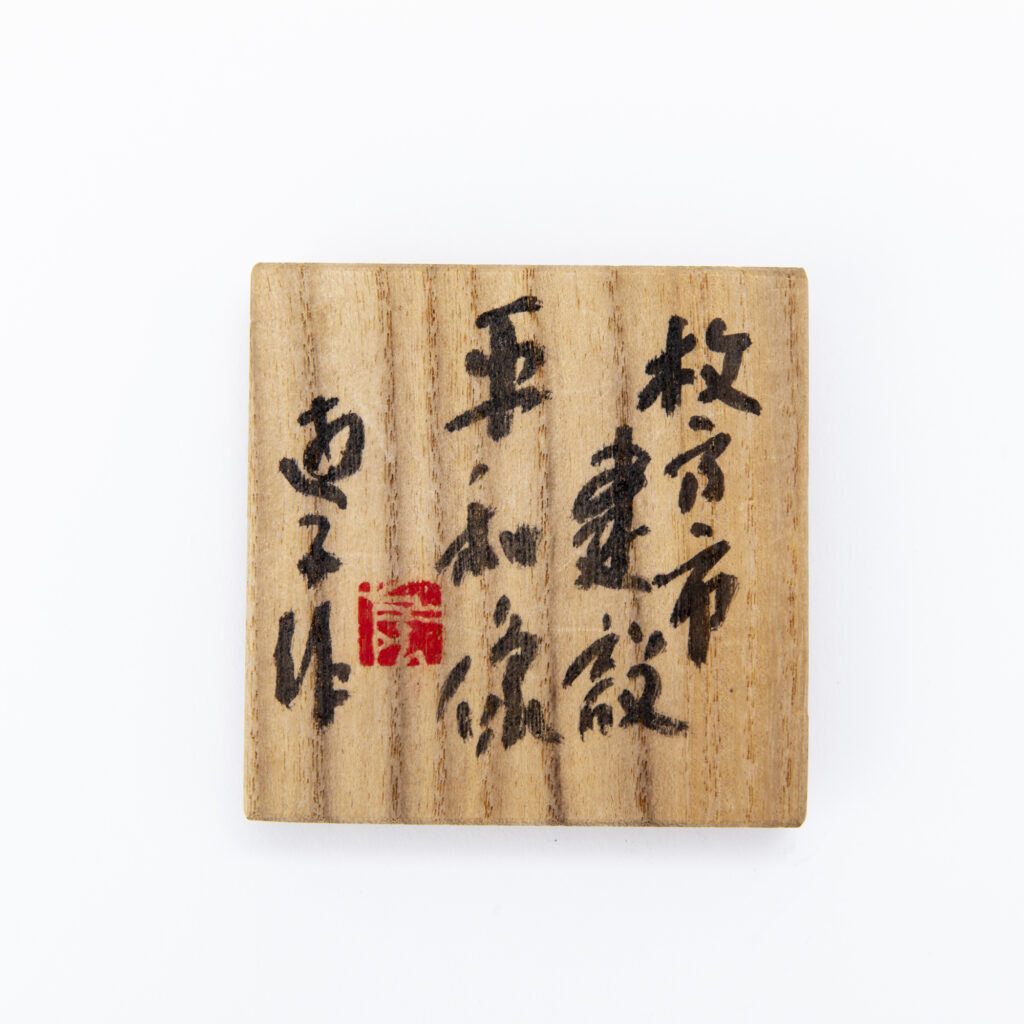 枚方市
建設
平和像
子作